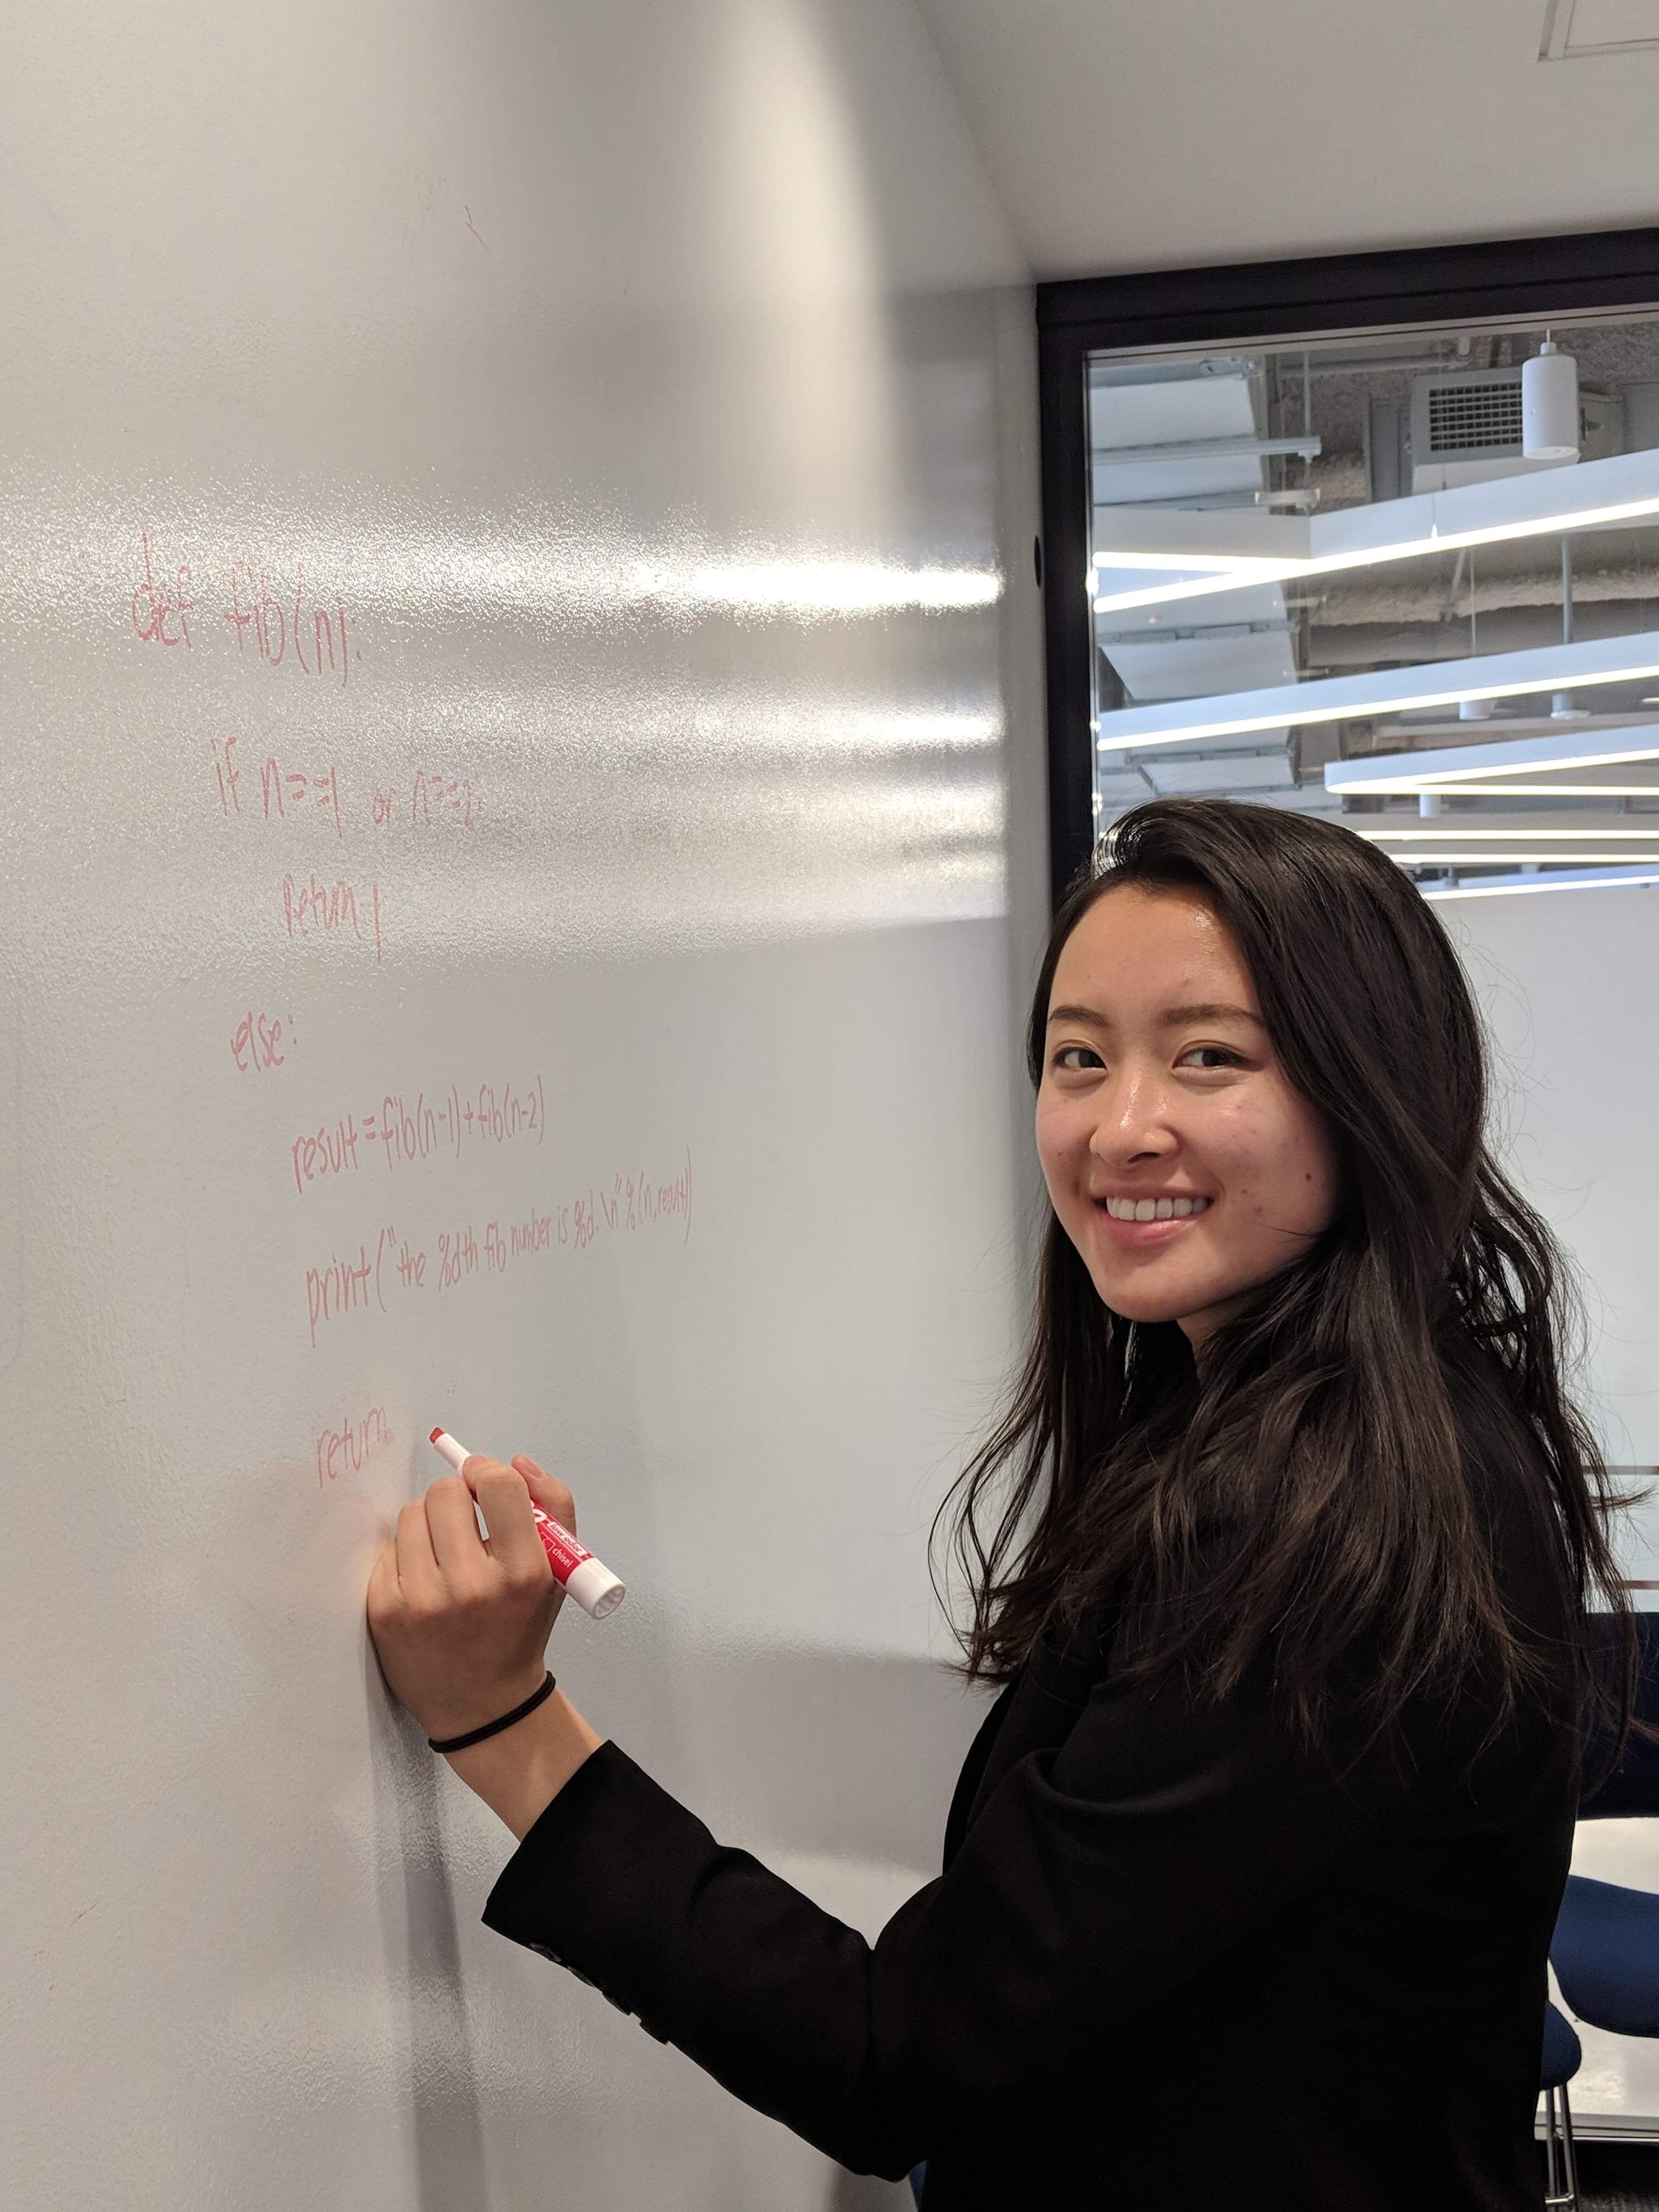 def fib(n):
if n==1 or n==2:
return 1
else:
result = fib(n-1)+fib(n-2)
print("the %dth fib number is %d.\n"%(n,result))
return
chisel